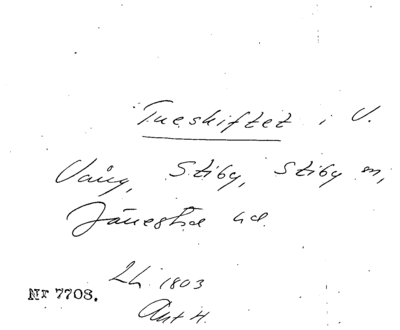 Tueskiftet i V.
Vång, Stiby, Stiby sn,
Järrestad hd.
Lh. 1803
Akt 4.
Nr 7708.